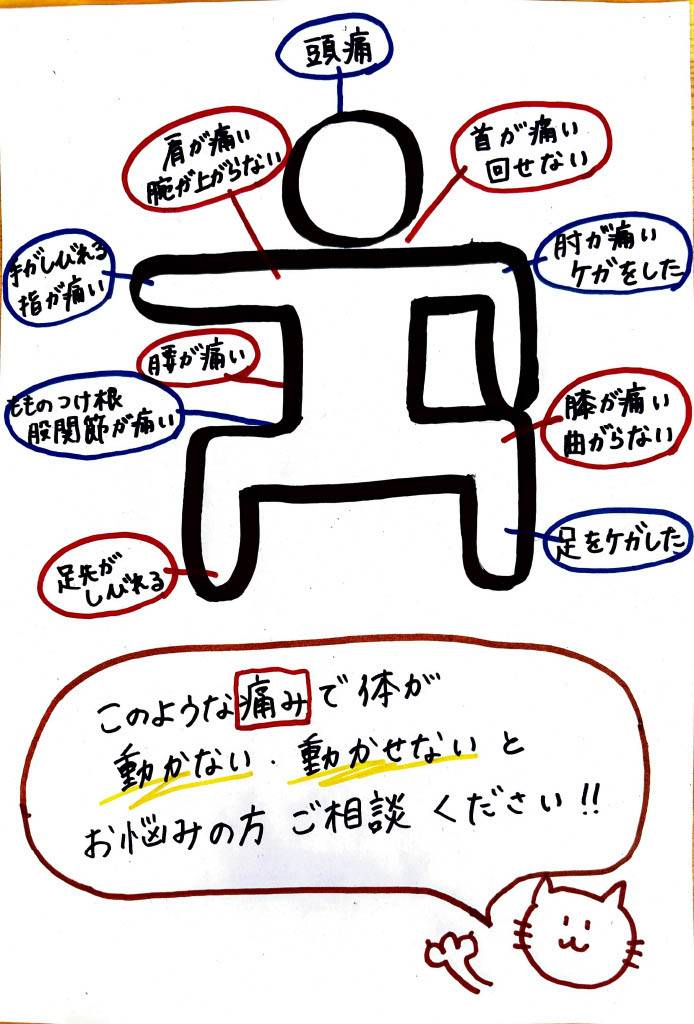 頭痛
肩が痛い
腕が上がらない
首が痛い
回せない
手がしびれる
指が痛い
肘が痛い
ケガをした
腰が痛い
もものつけ根
股関節が痛い
膝が痛い
曲がらない
足先が
しびれる
足をケガした
このような痛みで体が
動かない・動かせないと
お悩みの方 ご相談ください!!